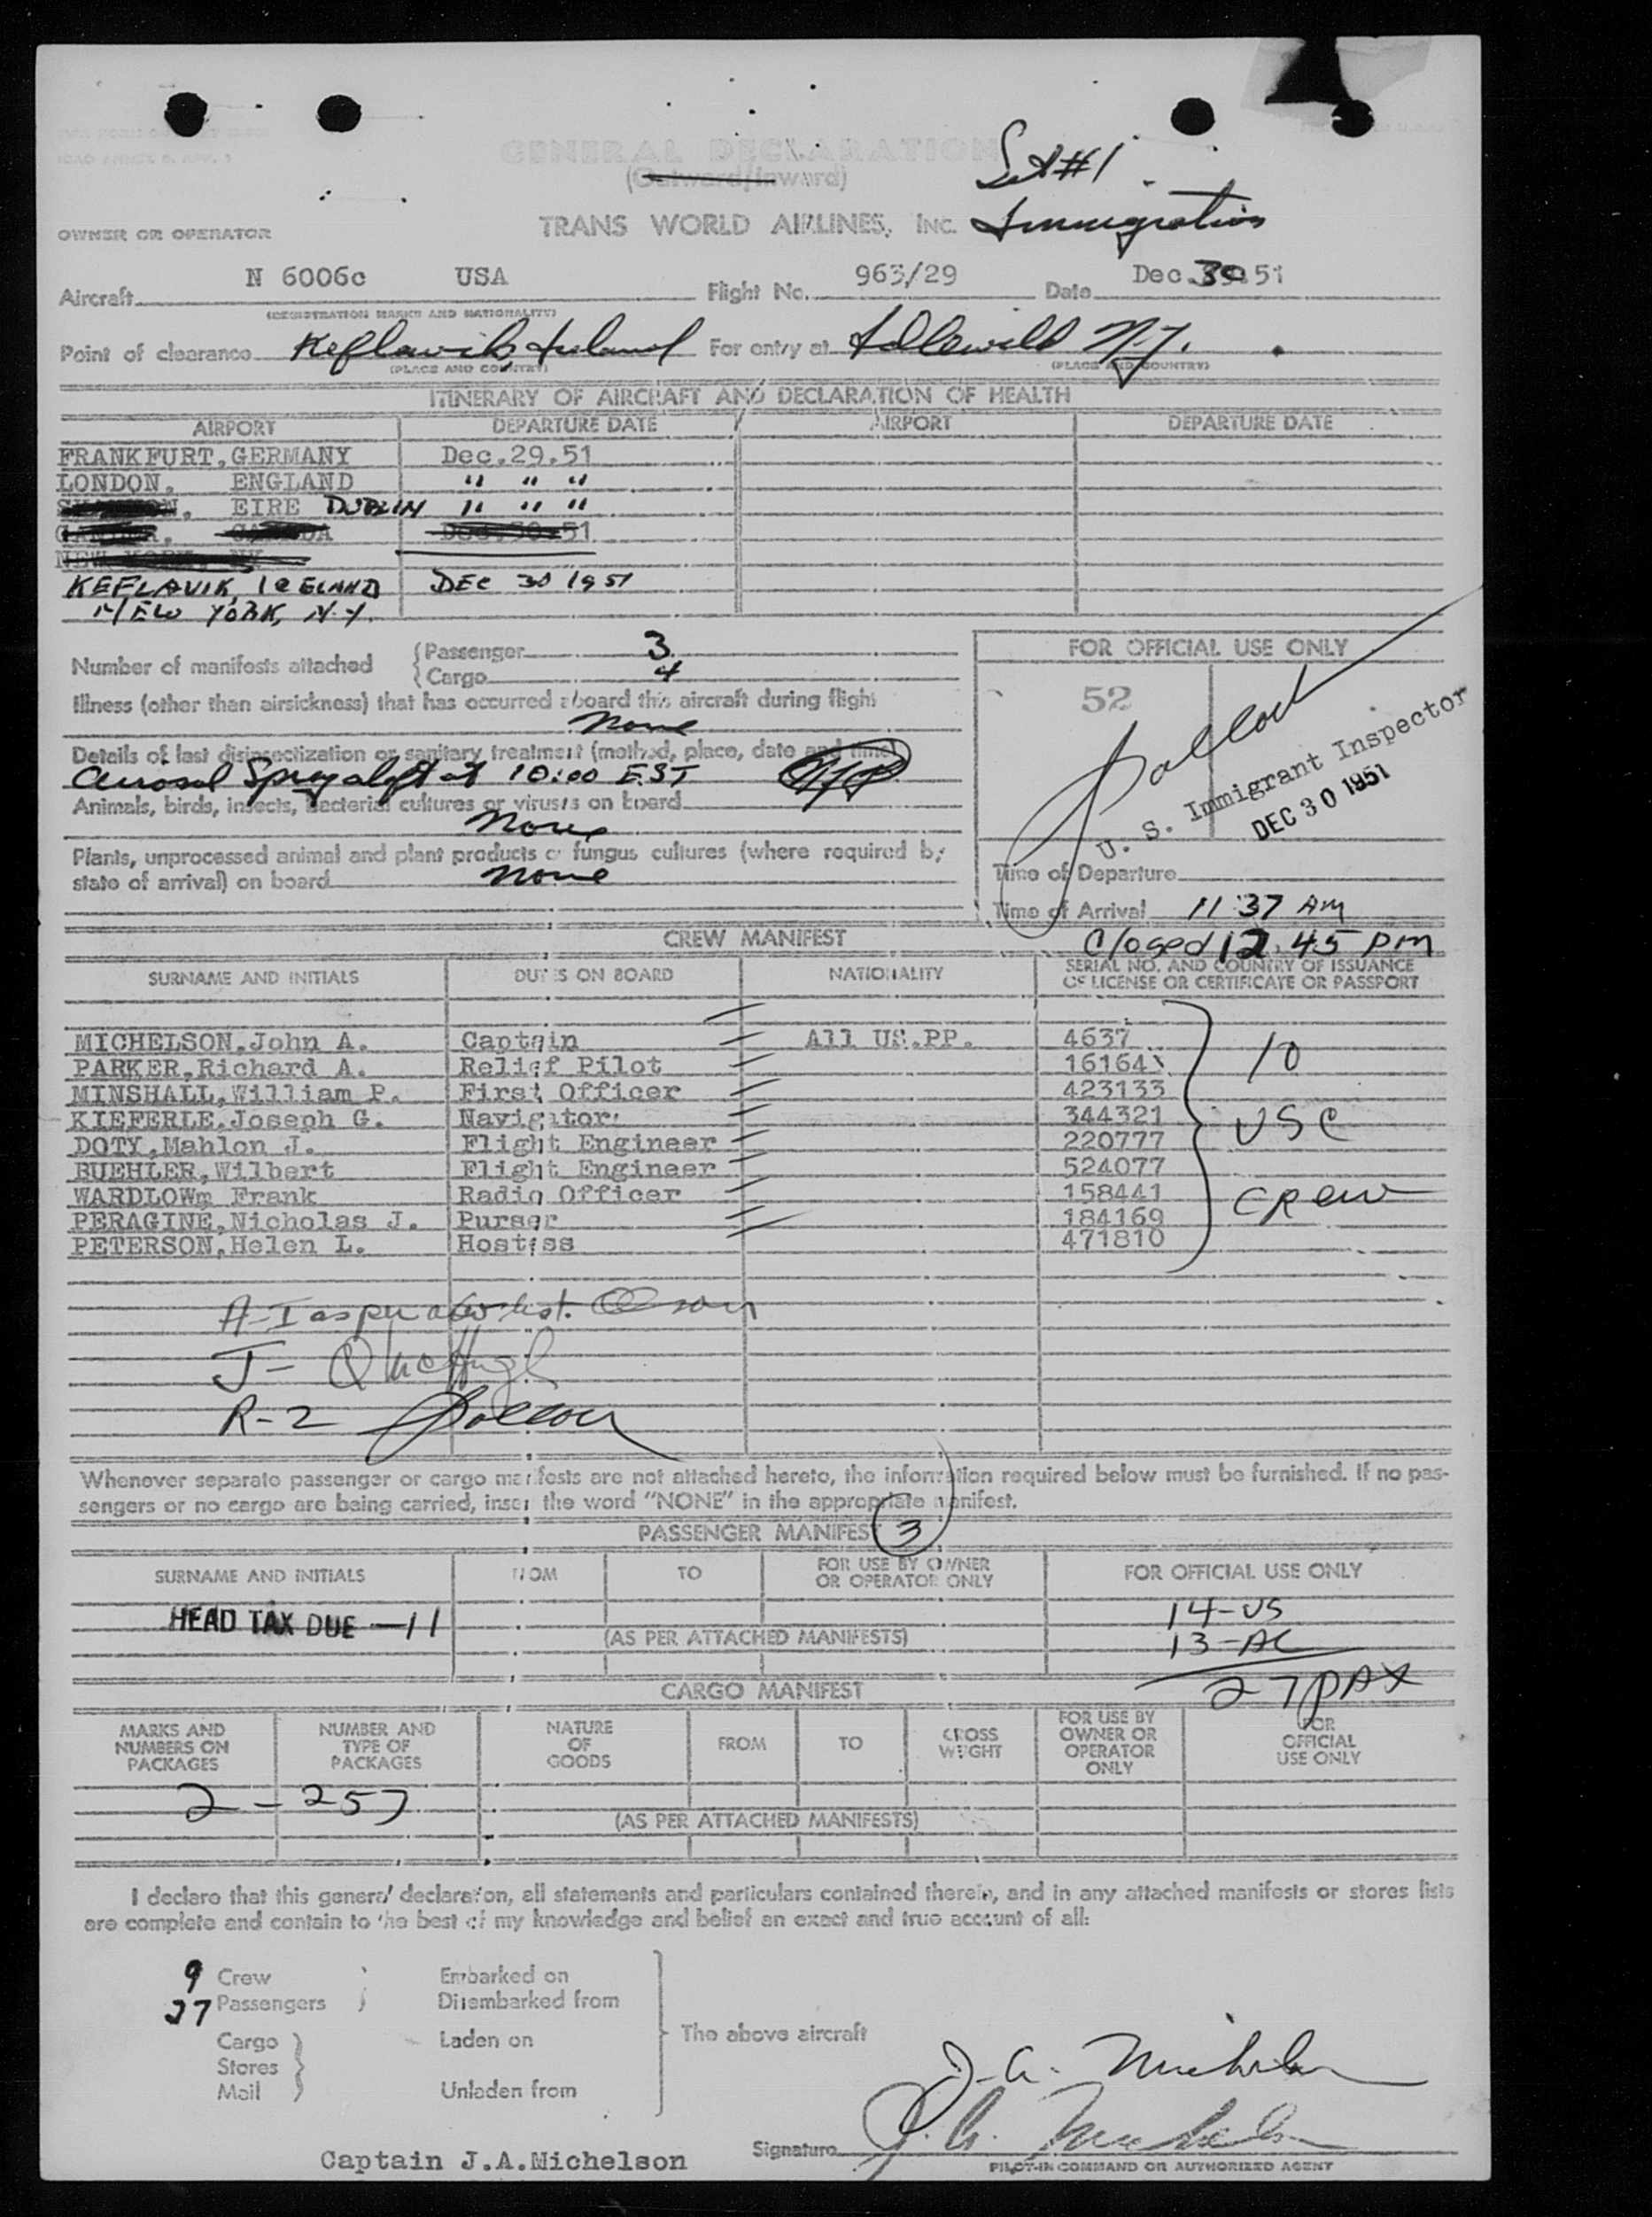 GENERAL DECLARATION
(Outward/Inward)
Set #1
Immigration
OWNER OR OPERATOR
TRANS WORLD AIRLINES, INC.
Aircraft N 6006c USA Flight No. 963/29 Date Dec.30.51
(REGISTRATION MARKS AND NATIONALITY)
Point of clearance Keflavik, Iceland For entry at Idlewild N.Y.
(PLACE AND COUNTRY) (PLACE AND COUNTRY)
ITINERARY OF AIRCRAFT AND DECLARATION OF HEALTH
AIRPORT DEPARTURE DATE AIRPORT DEPARTURE DATE
FRANKFURT, GERMANY Dec.29.51
LONDON, ENGLAND " " "
SHANNON, EIRE DUBLIN " " "
GANDER, CANADA Dec.30.51
NEW YORK, NY
KEFLAVIK, ICELAND DEC 30 1951
NEW YORK, N.Y.
Number of manifests attached Passenger 3
Cargo 4
Illness (other than airsickness) that has occurred aboard this aircraft during flight
None
Details of last disinsectization or sanitary treatment (method, place, date and time)
Aerosol Spray aloft at 10:00 EST
Animals, birds, insects, bacterial cultures or viruses on board
None
Plants, unprocessed animal and plant products or fungus cultures (where required by
state of arrival) on board None
FOR OFFICIAL USE ONLY
52
U. S. Immigrant Inspector
DEC 30 1951
Time of Departure
Time of Arrival 11:37 AM
Closed 12.45 PM
CREW MANIFEST
SURNAME AND INITIALS DUTIES ON BOARD NATIONALITY SERIAL NO. AND COUNTRY OF ISSUANCE
OF LICENSE OR CERTIFICATE OR PASSPORT
MICHELSON, John A. Captain All US.PP. 4637
PARKER, Richard A. Relief Pilot 16164
MINSHALL, William P. First Officer 423133
KIEFERLE, Joseph G. Navigator 344321
DOTY, Mahlon J. Flight Engineer 220777
BUEHLER, Wilbert Flight Engineer 524077
WARDLOWm Frank Radio Officer 158441
PERAGINE, Nicholas J. Purser 184169
PETERSON, Helen L. Hostess 471810
10
USC
CREW
A-I
J-
R-2
Whenever separate passenger or cargo manifests are not attached hereto, the information required below must be furnished. If no pas-
sengers or no cargo are being carried, insert the word "NONE" in the appropriate manifest.
PASSENGER MANIFEST 3
SURNAME AND INITIALS FROM TO FOR USE BY OWNER
OR OPERATOR ONLY FOR OFFICIAL USE ONLY
HEAD TAX DUE —11 14-US
(AS PER ATTACHED MANIFESTS) 13-AL
27 PAX
CARGO MANIFEST
MARKS AND
NUMBERS ON
PACKAGES
NUMBER AND
TYPE OF
PACKAGES
NATURE
OF
GOODS
FROM
TO
GROSS
WEIGHT
FOR USE BY
OWNER OR
OPERATOR
ONLY
FOR
OFFICIAL
USE ONLY
2 - 257
(AS PER ATTACHED MANIFESTS)
I declare that this general declaration, all statements and particulars contained therein, and in any attached manifests or stores lists
are complete and contain to the best of my knowledge and belief an exact and true account of all:
9 Crew Embarked on
27 Passengers Disembarked from
Cargo Laden on The above aircraft
Stores
Mail Unladen from
J.A. Michelson
Captain J.A.Michelson Signature J.A. Michelson
PILOT-IN COMMAND OR AUTHORIZED AGENT